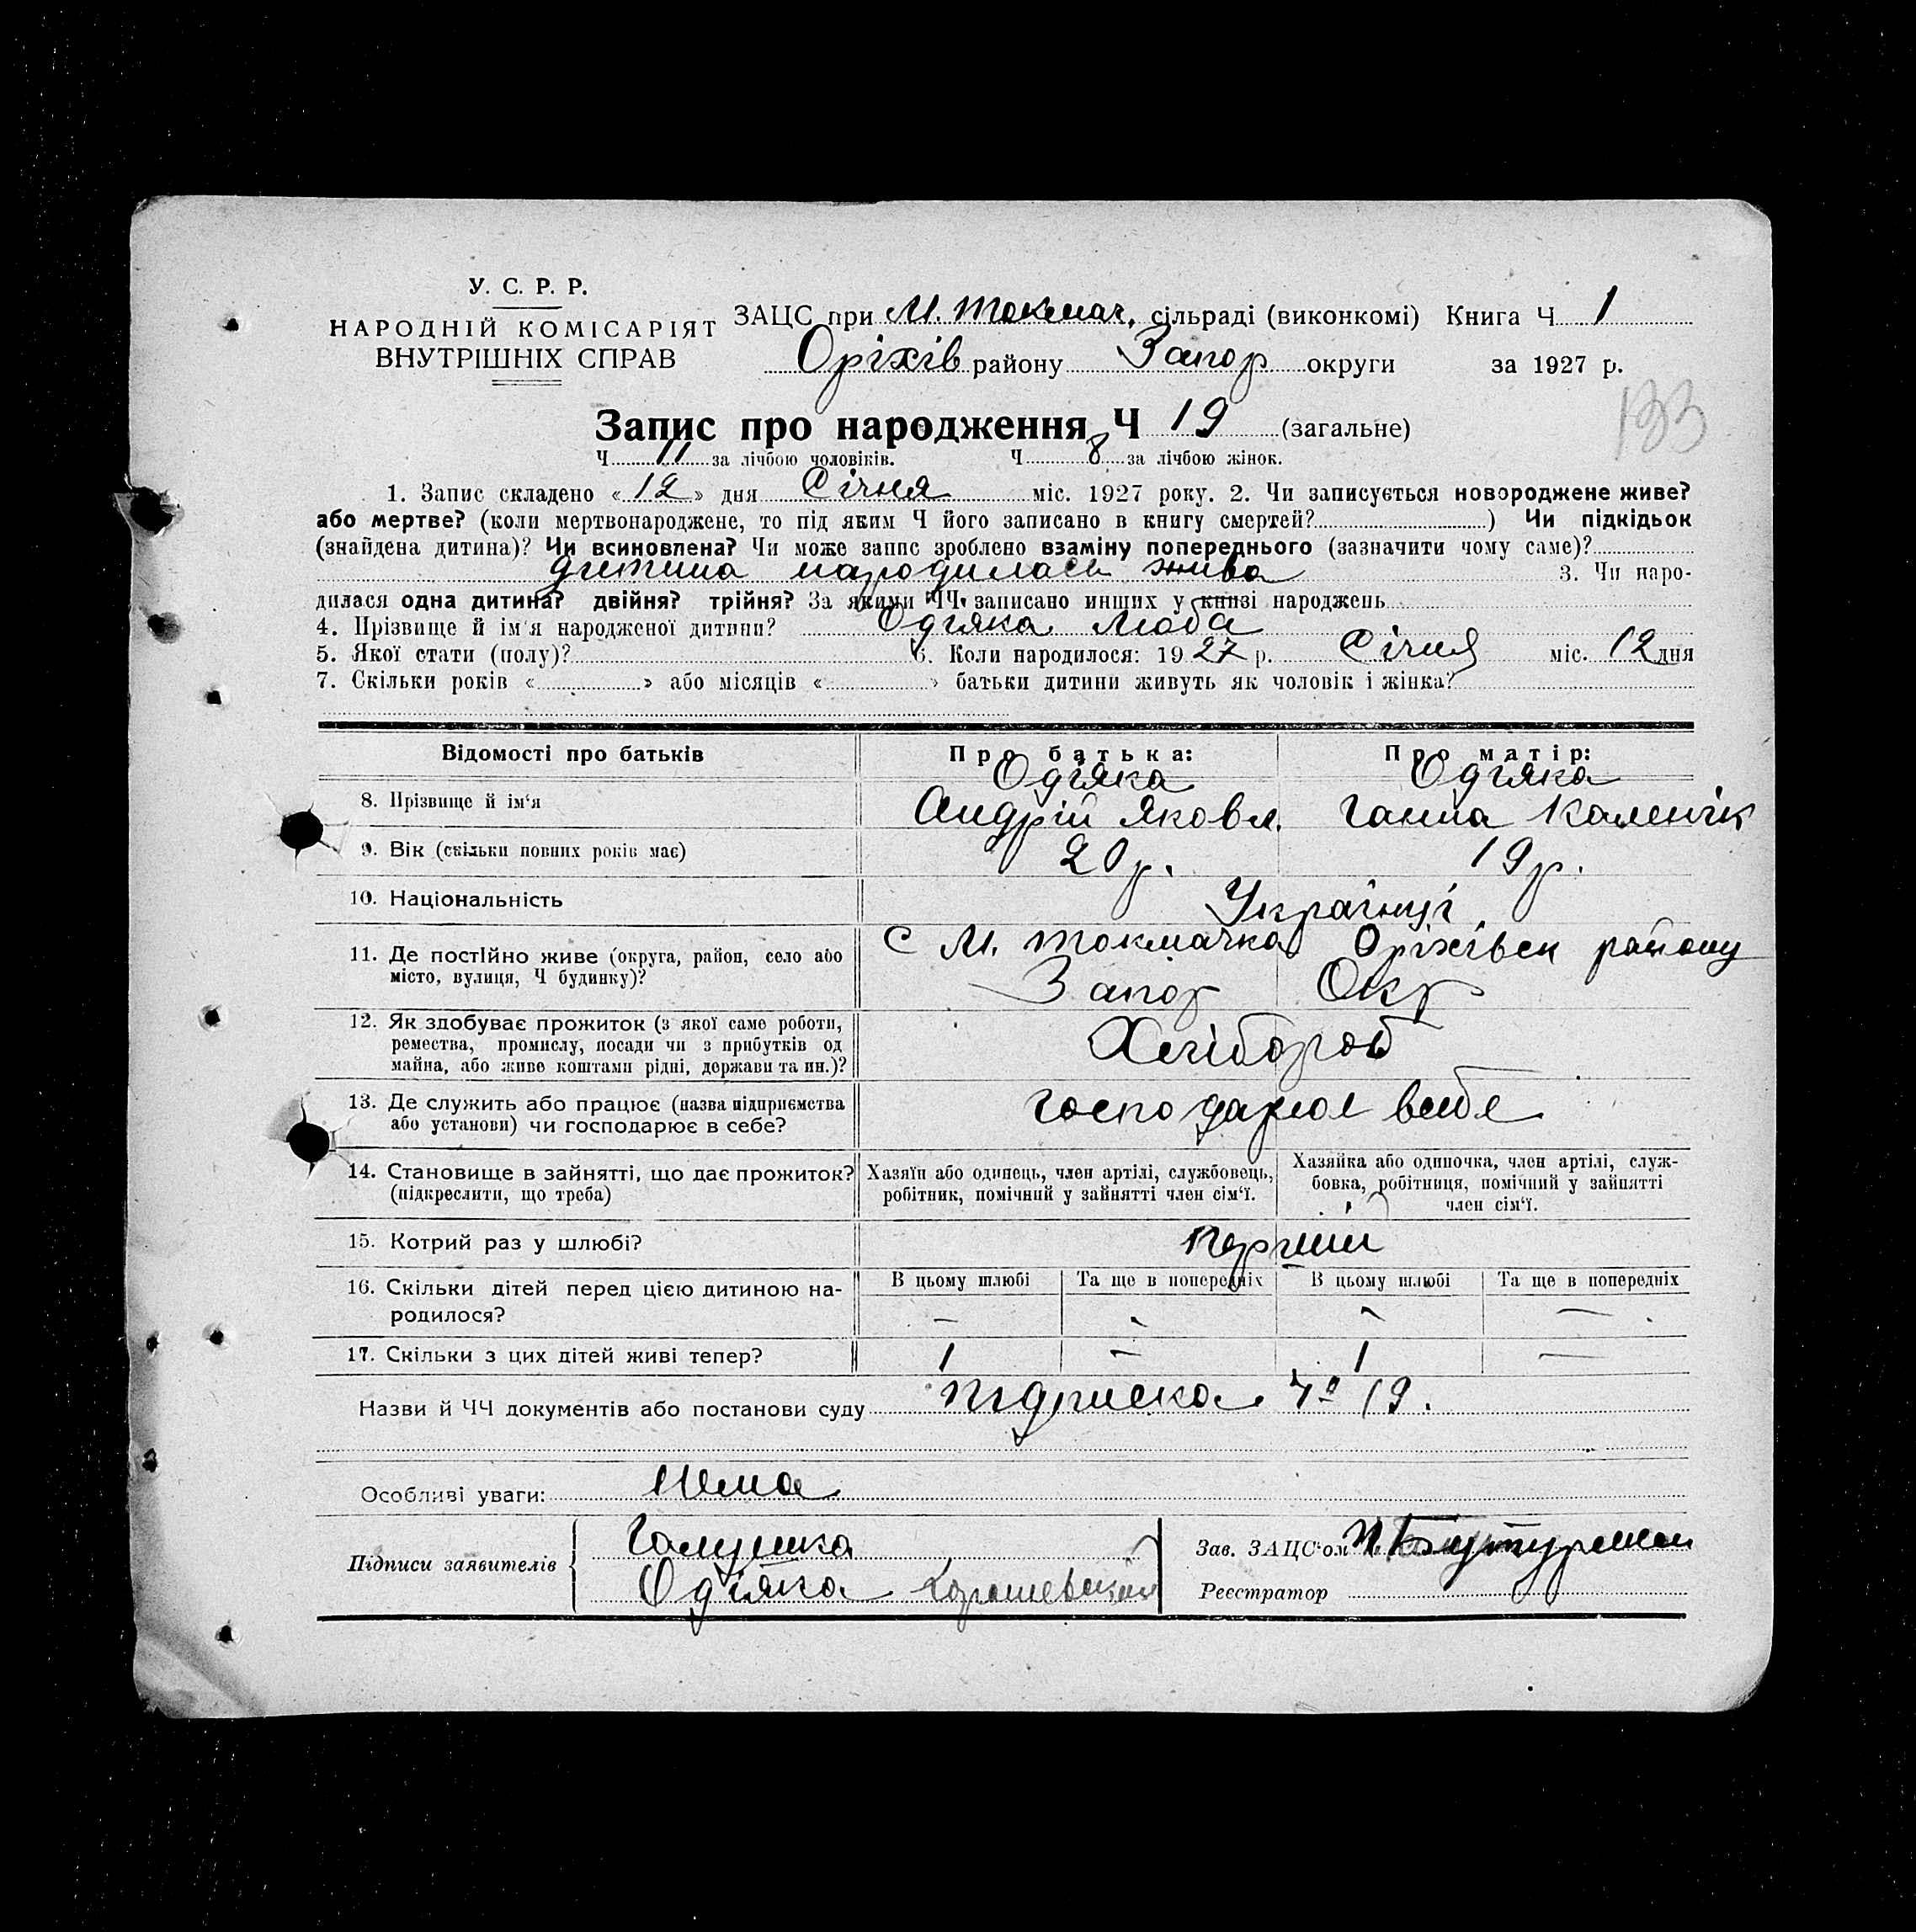 У. С. Р. Р.
НАРОДНІЙ КОМІСАРІЯТ
ВНУТРІШНІХ СПРАВ
ЗАЦС при М. Токмач. сільраді (виконкомі) Книга Ч 1
Оріхів району Запор округи за 1927 р.
133
Запис про народження Ч 19 (загальне)
Ч 11 за лічбою чоловіків. Ч 8 за лічбою жінок.
1. Запис складено «12» дня Січня міс. 1927 року. 2. Чи записується новороджене живе?
або мертве? (коли мертвонароджене, то під яким Ч його записано в книгу смертей? ) Чи підкідьок
(знайдена дитина)? Чи всиновлена? Чи може запис зроблено взаміну попереднього (зазначити чому саме)?
дитина народилась жива 3. Чи наро-
дилася одна дитина? двійня? трійня? За якими ЧЧ записано инших у книзі народжень
4. Прізвище й ім'я народженої дитини? Одіяка Люба
5. Якої стати (полу)? 6. Коли народилося: 1927 р. Січня міс. 12 дня
7. Скільки років « » або місяців « » батьки дитини живуть як чоловік і жінка?
Відомості про батьків Про батька: Про матір:
Одіяка Одіяка
8. Прізвище й ім'я Андрій Яковл. Ганна Каленик
9. Вік (скільки повних років має) 20 р. 19 р.
10. Національність Українці
11. Де постійно живе (округа, район, село або С М. Токмачка Оріхівськ району
місто, вулиця, Ч будинку)? Запор Окр
12. Як здобуває прожиток (з якої саме роботи,
ремества, промислу, посади чи з прибутків од Хлібороб
майна, або живе коштами рідні, держави та ин.)?
13. Де служить або працює (назва підприємства господарює в себе
або установи) чи господарює в себе?
14. Становище в зайнятті, що дає прожиток? Хазяїн або одинець, член артілі, службовець, Хазяйка або одиночка, член артілі, служ-
(підкреслити, що треба) робітник, помічний у зайнятті член сім'ї. бовка, робітниця, помічний у зайнятті
член сім'ї.
15. Котрий раз у шлюбі? Перший
16. Скільки дітей перед цією дитиною на- В цьому шлюбі Та ще в попередніх В цьому шлюбі Та ще в попередніх
родилося? — — — —
17. Скільки з цих дітей живі тепер? 1 — 1 —
Назви й ЧЧ документів або постанови суду Підписка 19.
Особливі уваги: Нема
Підписи заявителів Галушка
Одіяка
Зав. ЗАЦС'ом
Реєстратор